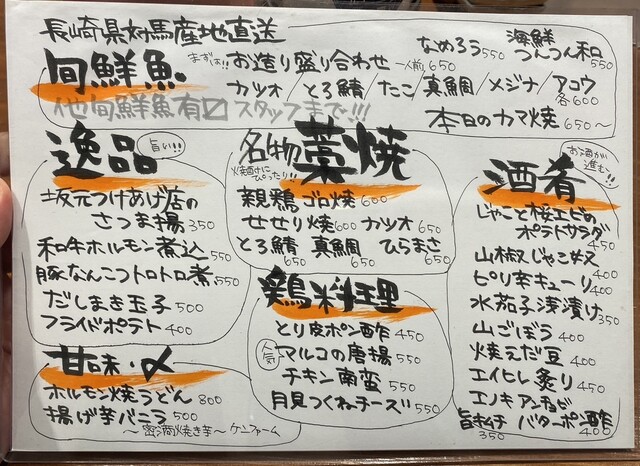 長崎県対馬産地直送
旬鮮魚
まずは!!
お造り盛り合わせ 一人前 650
なめろう 550
海鮮つんつん和 550
カツオ/とろ鯖/たこ/真鯛/メジナ/アコウ 各600
他旬鮮魚有〼 スタッフまで!!!
本日のカマ焼 650～
逸品
旨い!!
坂元つけあげ店の
さつま揚 350
和牛ホルモン煮込 550
豚なんこつトロトロ煮 550
だしまき玉子 500
フライドポテト 400
名物 藁焼
焼酎にぴったり!!
親鶏ゴロ焼 600
せせり焼 600 カツオ 650
とろ鯖 650 真鯛 650 ひらまさ 650
鶏料理
とり皮ポン酢 450
人気
マルコの唐揚 550
チキン南蛮 550
月見つくねチーズ 550
酒肴
お酒が進む!!
じゃこと桜エビの
ポテトサラダ 450
山椒じゃこ奴 400
ピリ辛キューリ 400
水茄子浅漬け 350
山ごぼう 400
焼えだ豆 400
エイヒレ炙り 450
エノキアンチョビ
バターポン酢 400
旨キムチ 350
甘味・〆
ホルモン焼うどん 800
揚げ芋バニラ 500
～蜜滴焼き芋～ケニファーム